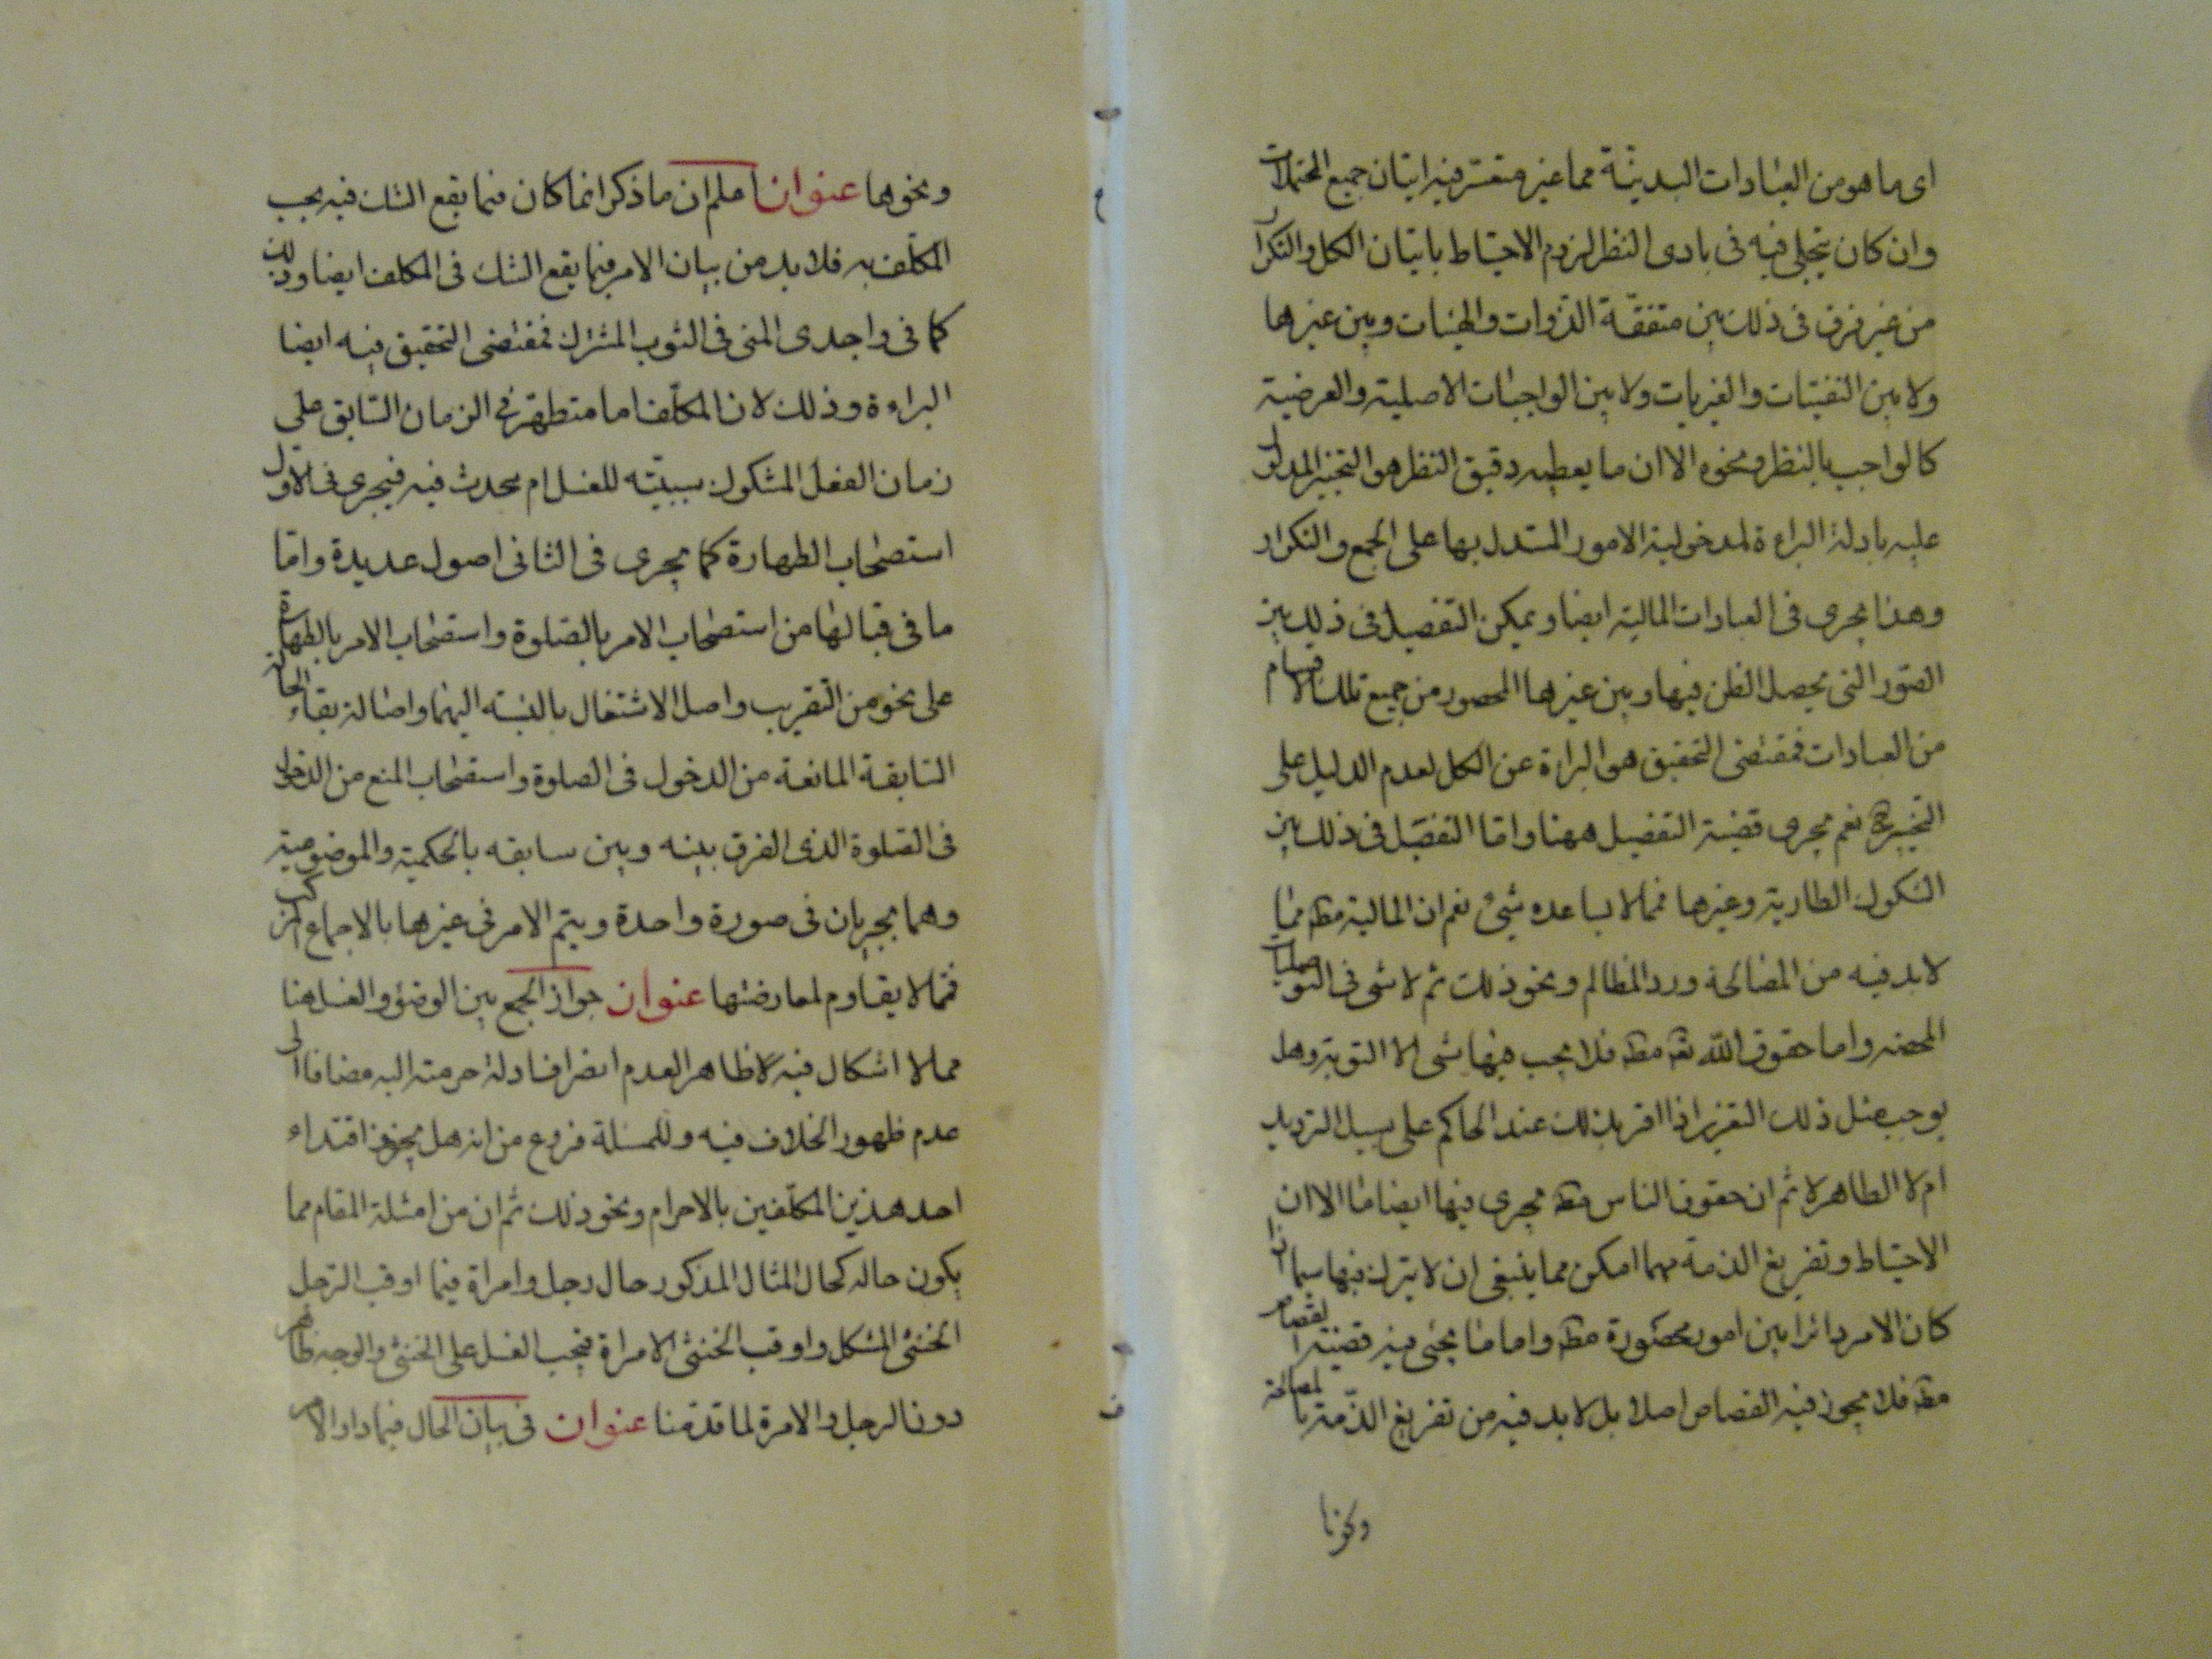 اى ما هو من العبادات البدنية مما غير متعسر فيه اتيان جميع المحتملات
وان كان يتجلى فيه فى بادى النظر لزوم الاحتياط باتيان الكل والتكرار
من غير فرق فى ذلك بين متفقة الذوات والهيئات وبين غيرها
ولا بين النفسيات والغيريات ولا بين الواجبات الاصلية والعرضية
كالواجب بالنظر ونحوه الا ان ما يعطيه دقيق النظر هو التخيير المدلول
عليه بادلة البراءة لمدخولية الامور المستدل بها على الجمع والتكرار
وهذا يجرى فى العبادات المالية ايضا ويمكن التفصيل فى ذلك بين
الصور التى يحصل الظن فيها وبين غيرها المحصور من جميع تلك الاقسام
من العبادات فمقتضى التحقيق هو البراءة عن الكل لعدم الدليل على
التخيير ح نعم يجرى قضية التفصيل ههنا واما التفصيل فى ذلك بين
الشكوك الطارية وغيرها فمما لا يساعده شئ نعم ان المالية مط مما
لا بد فيه من المصالحة ورد المظالم ونحو ذلك ثم لا شى فى التوصليات
المحضه واما حقوق الله تعة مط فلا يجب فيها شى الا التوبة وهل
يوجب مثل ذلك التعزير اذا اقر بذلك عند الحاكم على سبيل الترديد
ام لا الظاهر لا ثم ان حقوق الناس مط يجرى فيها ايضا ما الا ان
الاحتياط وتفريغ الذمة مهما امكن مما ينبغى ان لا يترك فيها سيما اذا
كان الامر دائرا بين امور محصورة مط واما ما يجئ فيه قضية القصاص
مط فلا يجوز فيه القصاص اصلا بل لا بد فيه من تفريغ الذمة بالمصالحة
ونحوها
ونحوها عنوان اعلم ان ما ذكر انما كان فيما يقع الشك فيه يجب
المكلف به فلا بد من بيان الامر فيما يقع الشك فى المكلف ايضا وذلك
كما فى واجدى المنى فى الثوب المشترك فمقتضى التحقيق فيه ايضا
البراءة وذلك لان المكلف اما متطهر فى الزمان السابق على
زمان الفعل المشكوك سببيته للغسل ام محدث فيه فيجرى فى الاول
استصحاب الطهارة كما يجرى فى الثانى اصول عديدة واما
ما فى قبالها من استصحاب الامر بالصلوة واستصحاب الامر بالطهارة
على نحو من التقريب واصل الاشتغال بالنسبة اليهما واصالة بقاء الحالة
السابقة المانعة من الدخول فى الصلوة واستصحاب المنع من الدخول
فى الصلوة الذى الفرق بينه وبين سابقه بالحكمية والموضوعية
وهما يجريان فى صورة واحدة ويتم الامر فى غيرها بالاجماع المركب
فمما لا يقاوم لمعارضتها عنوان جواز الجمع بين الوضوء والغسل هنا
مما لا اشكال فيه لا ظاهر العدم انصراف ادلة حرمته اليه مضافا الى
عدم ظهور الخلاف فيه وللمسئلة فروع من انه هل يجوز اقتداء
احد هذين المكلفين بالاحرام ونحو ذلك ثم ان من امثلة المقام مما
يكون حاله كحال المثال المذكور حال رجل وامراة فيما اوقب الرجل
الخنثى المشكل واوقب الخنثى الامراة فيجب الغسل على الخنثى والوجه ظاهر
دون الرجل والامرة لما قدمنا عنوان فى بيان الحال فيما دار الامر